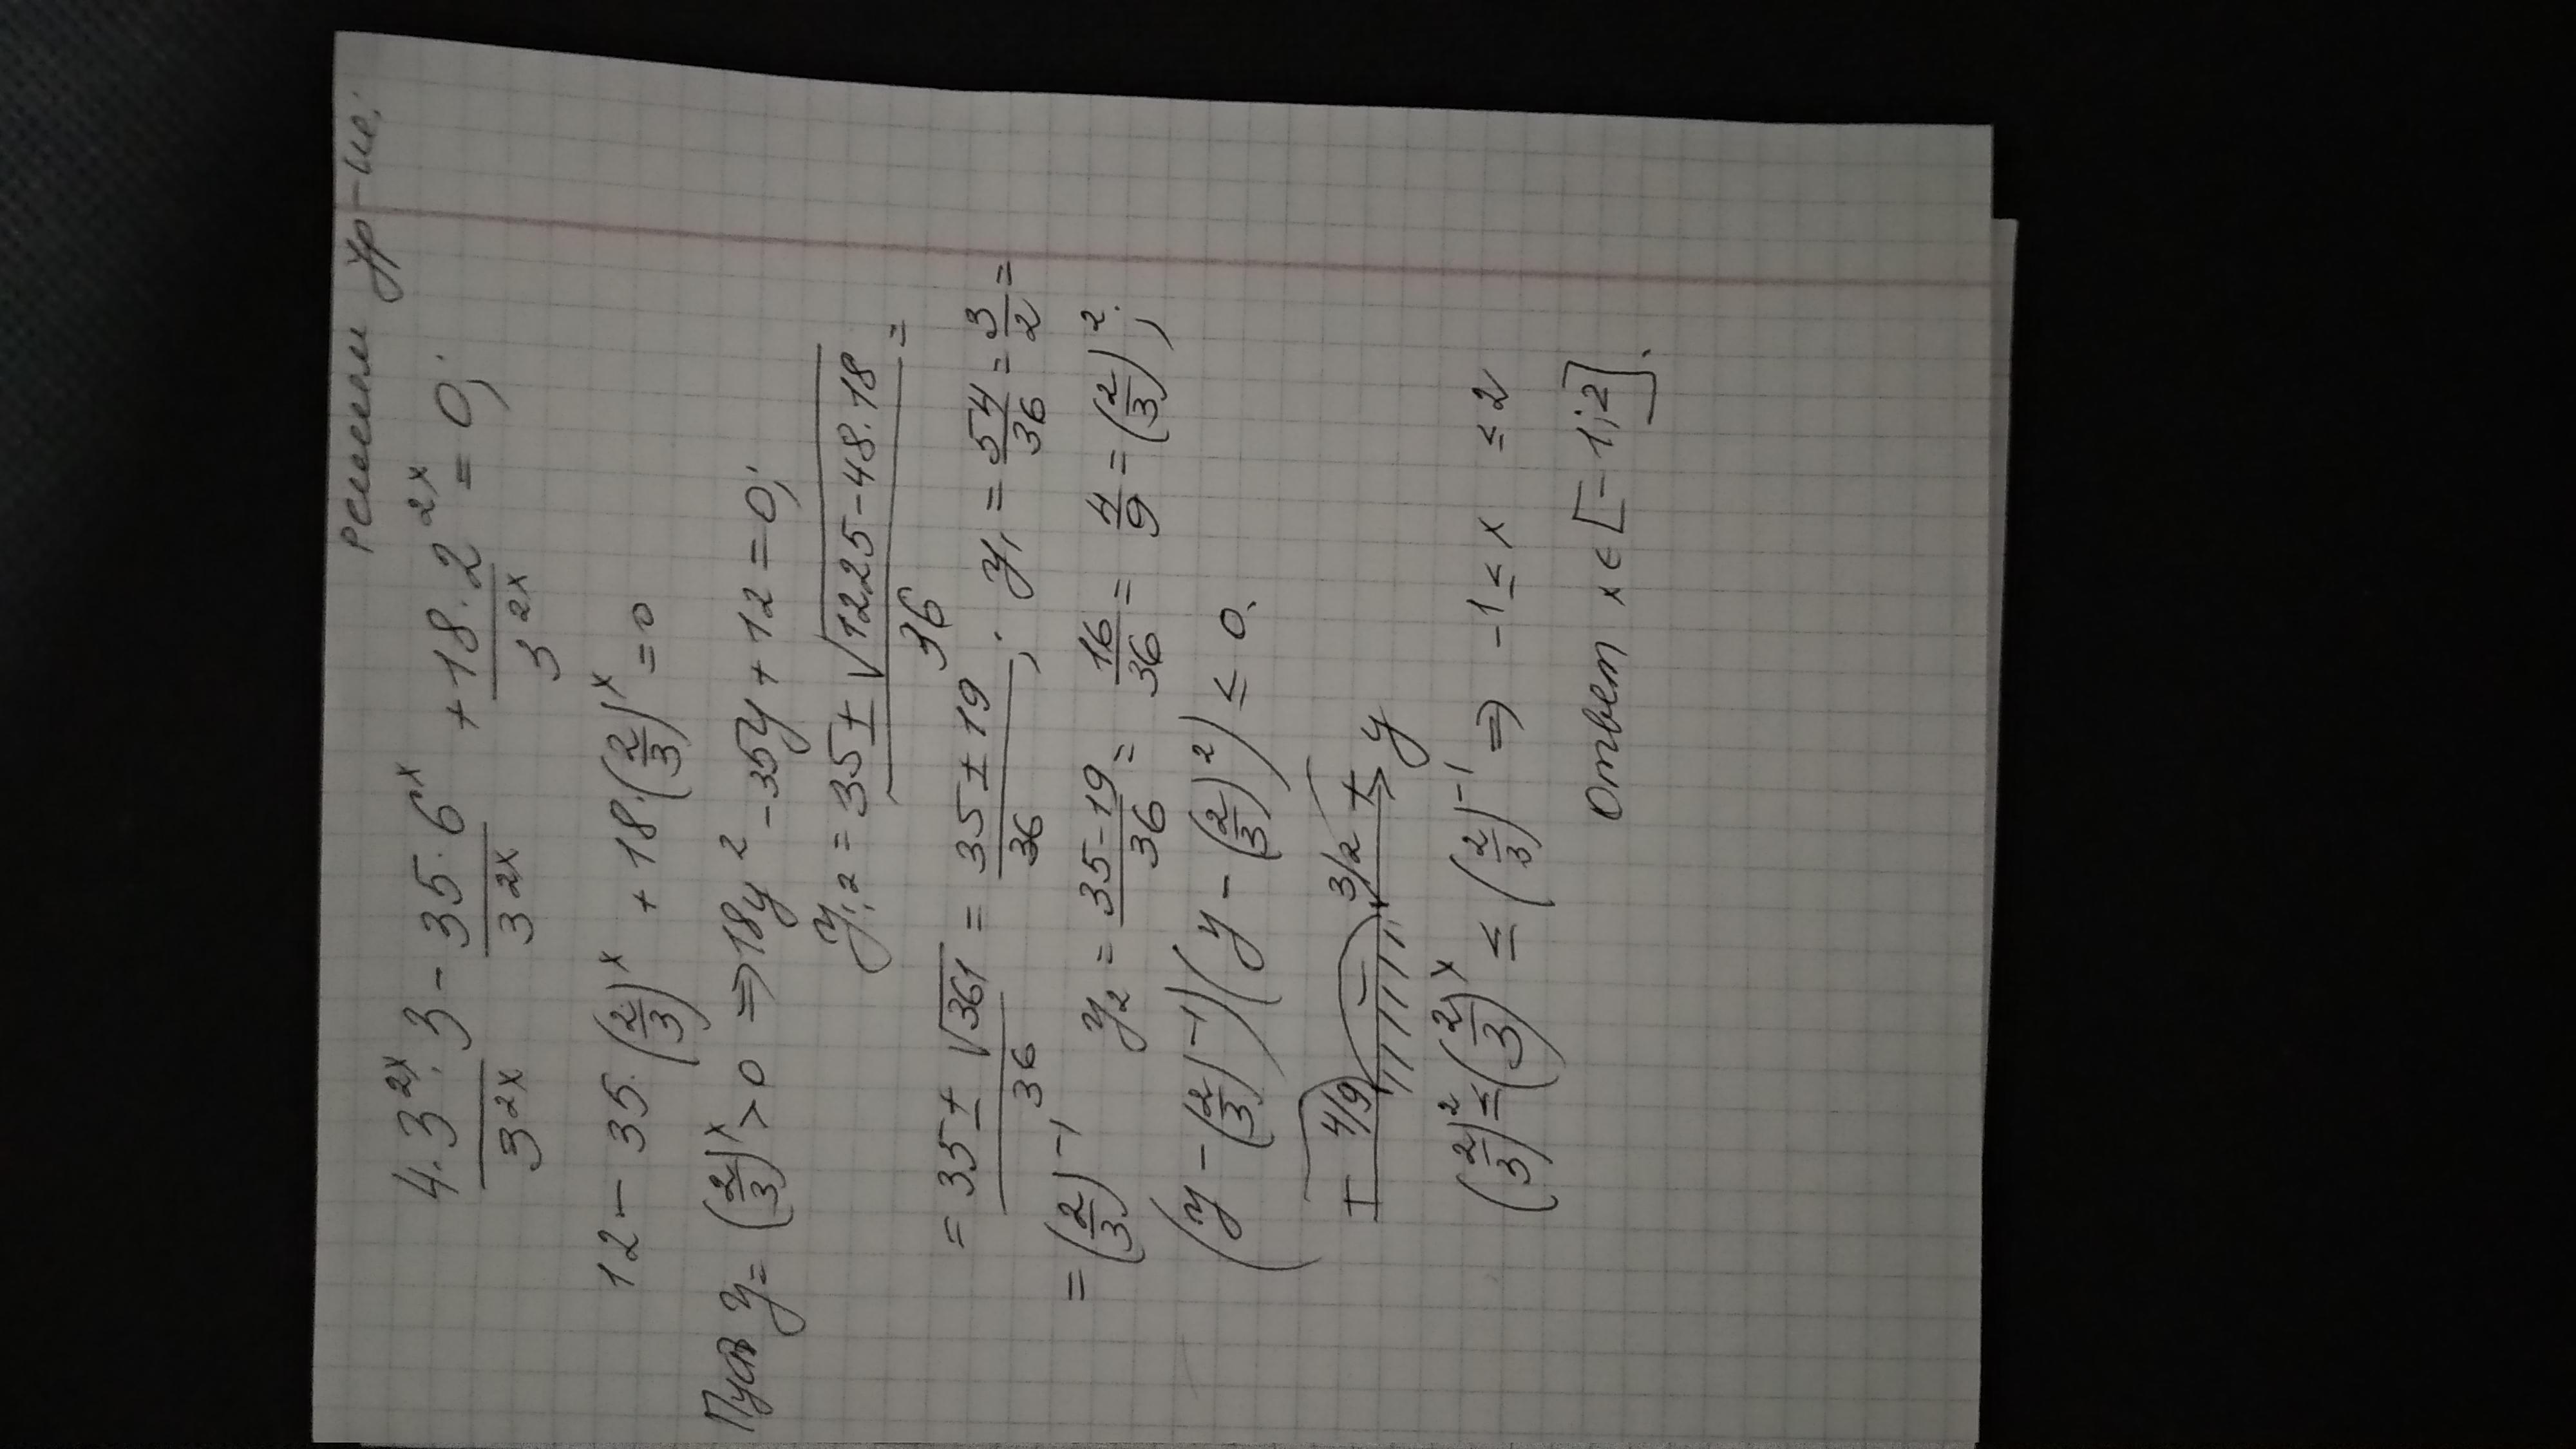 Решим ур-ие:
4·3^{2x}·3/3^{2x} - 35·6^x/3^{2x} + 18·2^{2x}/3^{2x} = 0;
12 - 35·(2/3)^x + 18·(2/3)^x = 0
Пусть y = (2/3)^x > 0 ⇒ 18y² - 35y + 12 = 0;
y₁,₂ = (35 ± √(1225 - 48·18))/36 =
= (35 ± √361)/36 = (35 ± 19)/36; y₁ = 54/36 = 3/2 =
= (2/3)^{-1} y₂ = (35-19)/36 = 16/36 = 4/9 = (2/3)²;
(y - (2/3)^{-1})(y - (2/3)²) ≤ 0.
+ 4/9 - 3/2 + y
(2/3)² ≤ (2/3)^x ≤ (2/3)^{-1} ⇒ -1 ≤ x ≤ 2
Ответ x ∈ [-1; 2].